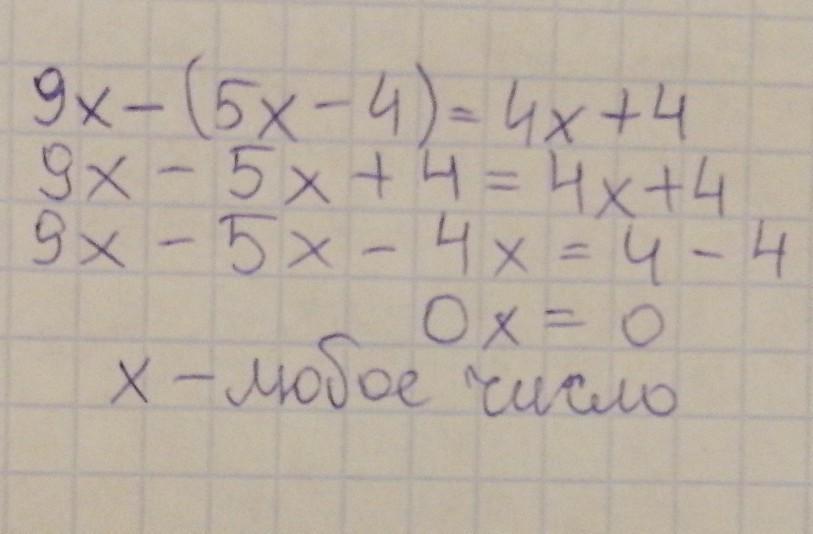 9x - (5x - 4) = 4x + 4
9x - 5x + 4 = 4x + 4
9x - 5x - 4x = 4 - 4
0x = 0
x - любое число